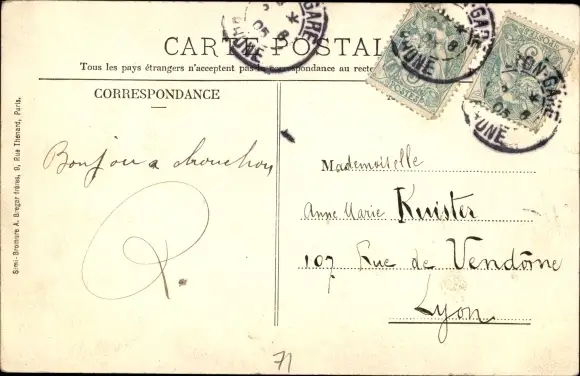 CARTE POSTALE
Tous les pays étrangers n'acceptent pas la correspondance au recto
CORRESPONDANCE
Simi-Bromure A. Breger frères, 9, Rue Thénard, Paris.
Bonjour
Mademoiselle
Anne Marie Kuister
107 Rue de Vendôme
Lyon
71
LYON-GARE
RHÔNE
POSTES